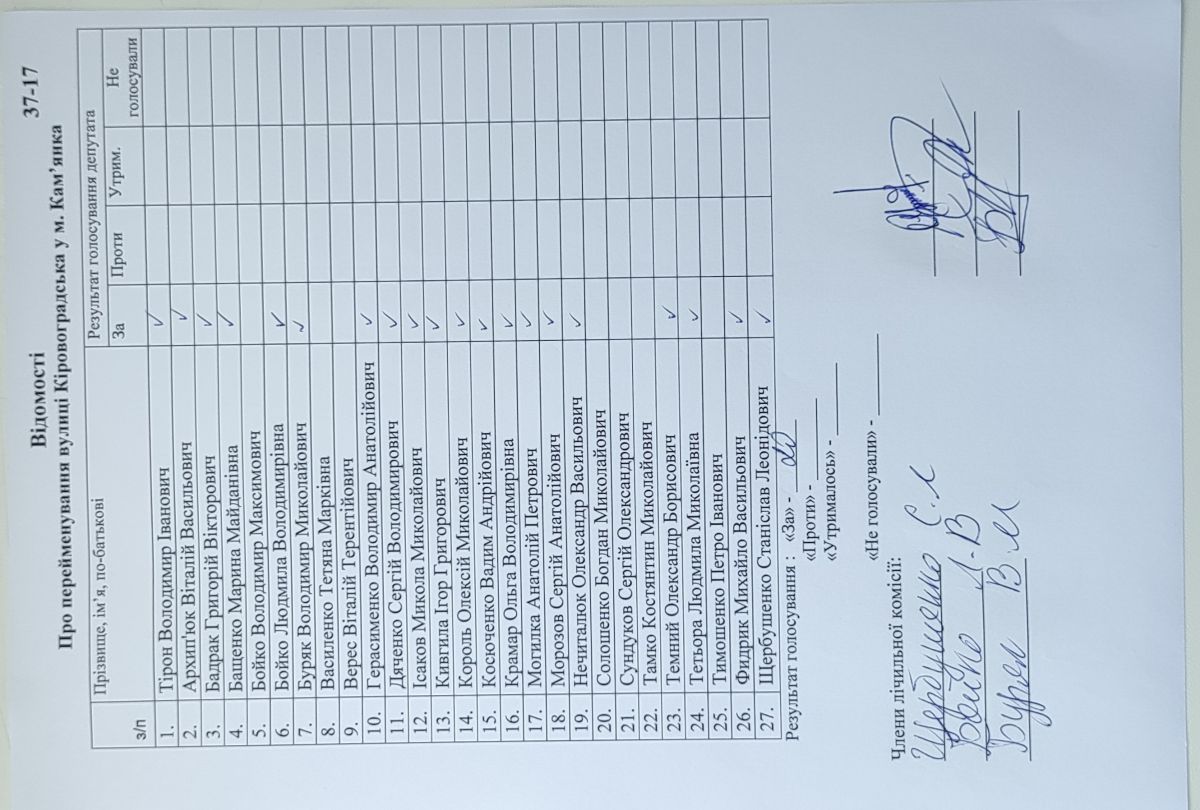 Відомості 37-17
Про перейменування вулиці Кіровоградська у м. Кам’янка
з/п Прізвище, ім’я, по-батькові Результат голосування депутата
За Проти Утрим. Не голосували
1. Тірон Володимир Іванович ✓
2. Архип'юк Віталій Васильович ✓
3. Бадрак Григорій Вікторович ✓
4. Бащенко Марина Майданівна ✓
5. Бойко Володимир Максимович
6. Бойко Людмила Володимирівна ✓
7. Буряк Володимир Миколайович ✓
8. Василенко Тетяна Марківна
9. Верес Віталій Терентійович
10. Герасименко Володимир Анатолійович ✓
11. Дяченко Сергій Володимирович ✓
12. Ісаков Микола Миколайович ✓
13. Кивгила Ігор Григорович ✓
14. Король Олексій Миколайович ✓
15. Косюченко Вадим Андрійович ✓
16. Крамар Ольга Володимирівна ✓
17. Могилка Анатолій Петрович ✓
18. Морозов Сергій Анатолійович ✓
19. Нечиталюк Олександр Васильович ✓
20. Солошенко Богдан Миколайович
21. Сундуков Сергій Олександрович
22. Тамко Костянтин Миколайович
23. Темний Олександр Борисович ✓
24. Тетьора Людмила Миколаївна ✓
25. Тимошенко Петро Іванович
26. Фидрик Михайло Васильович ✓
27. Щербушенко Станіслав Леонідович ✓
Результат голосування : «За» - 20
«Проти» -
«Утрималось» -
«Не голосували» -
Члени лічильної комісії:
Щербушенко С.Л
Бойко Л.В
Буряк В.М